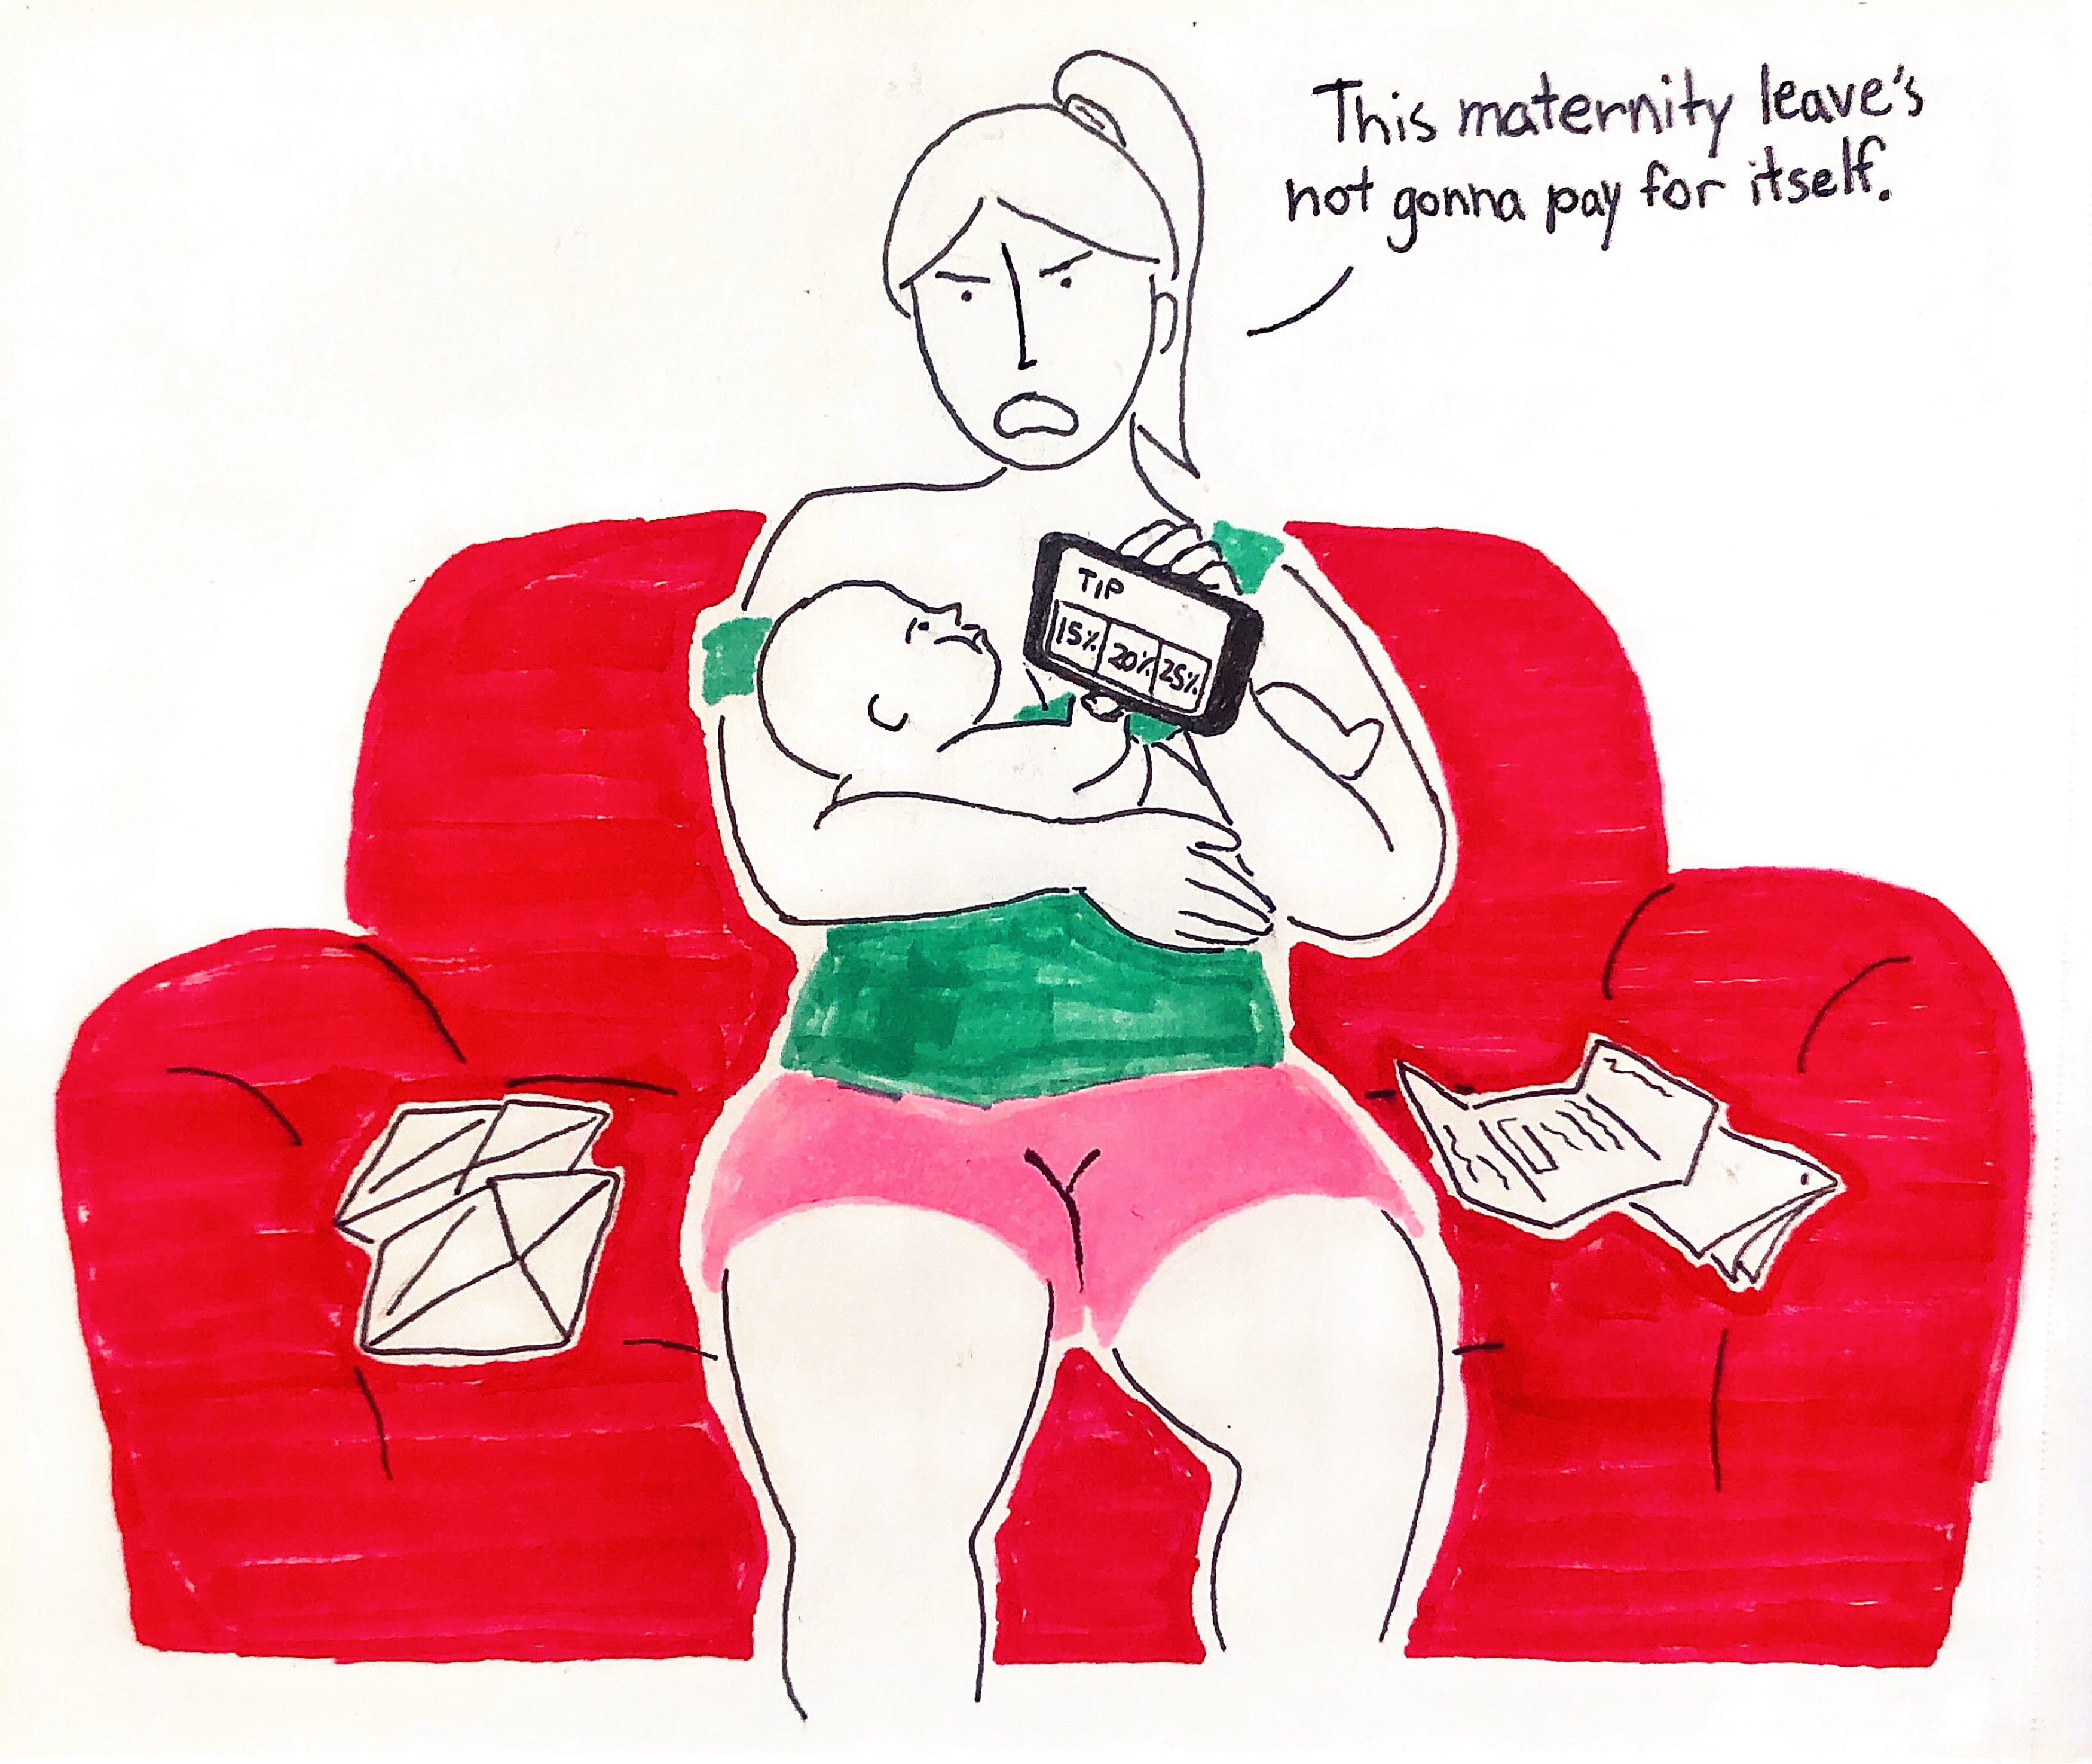 This maternity leave's
not gonna pay for itself.
TIP
15% 20% 25%